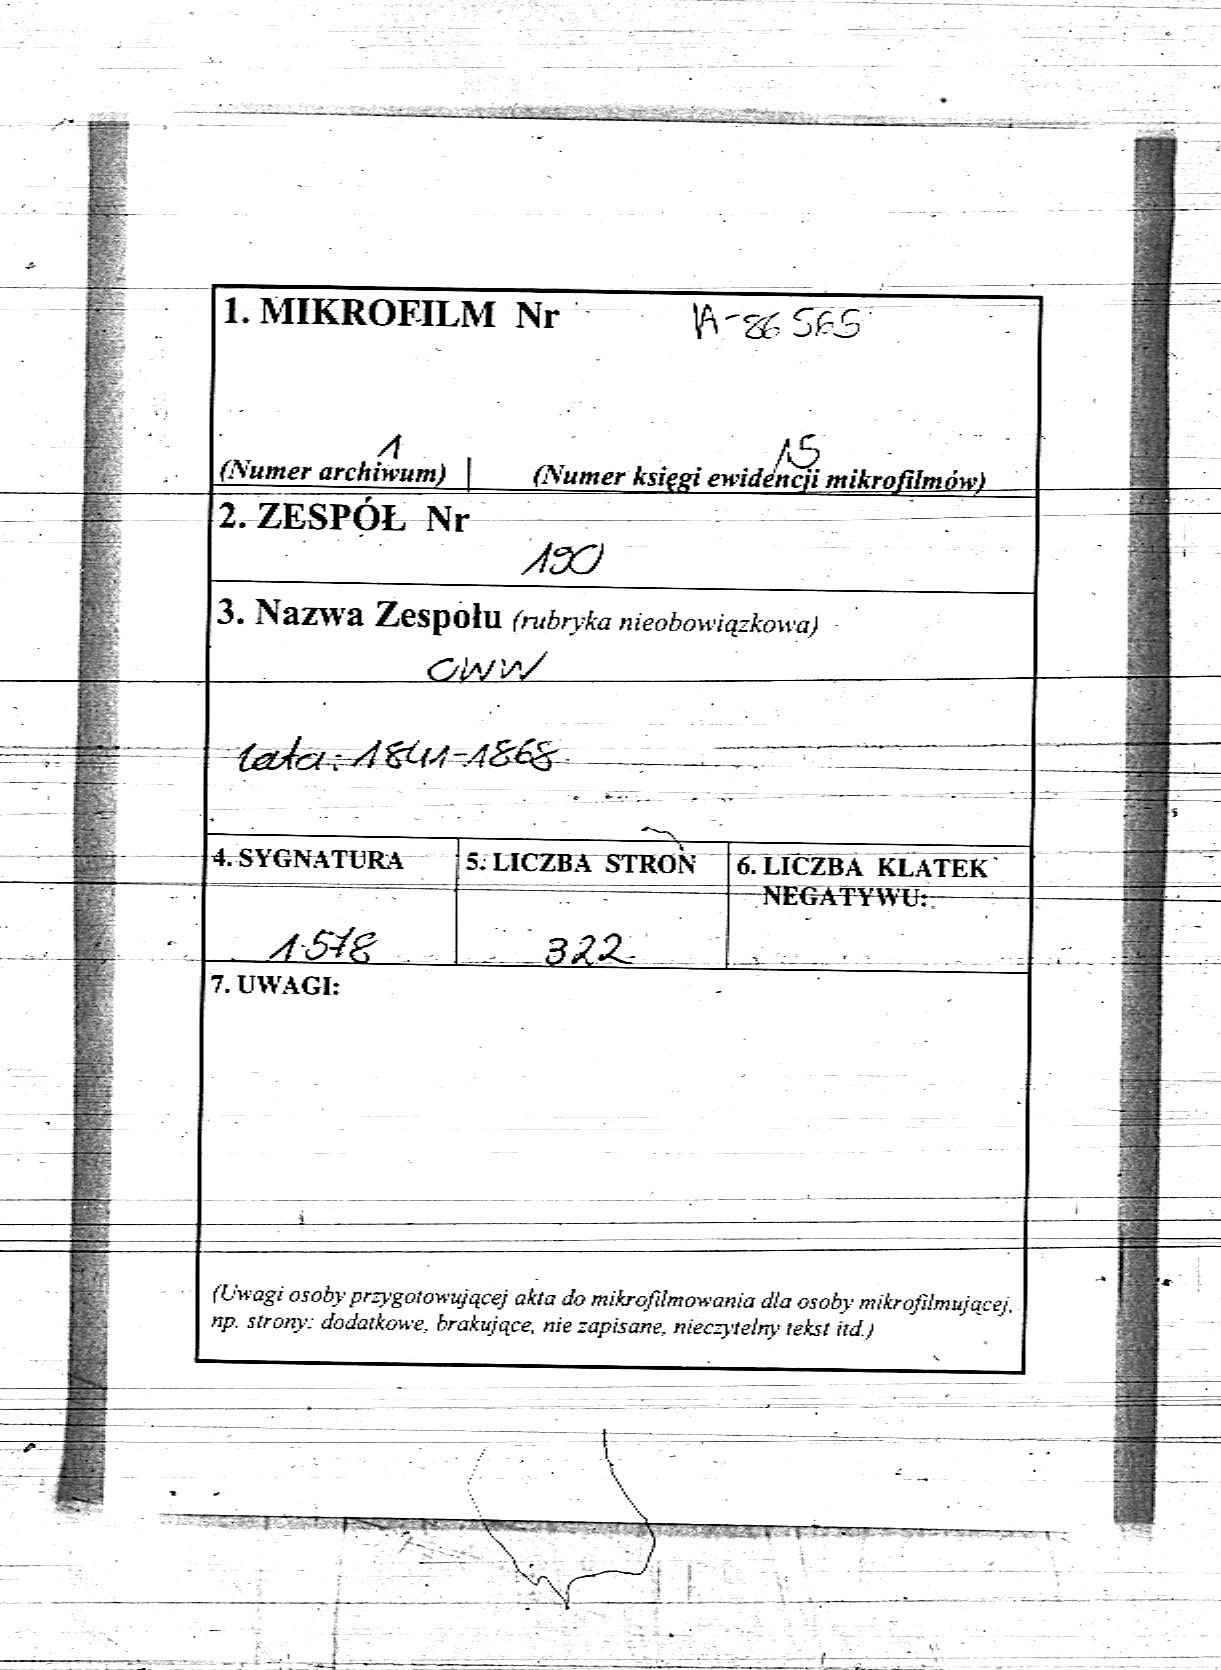 1. MIKROFILM Nr 1A-86565
1 15
(Numer archiwum) | (Numer księgi ewidencji mikrofilmów)
2. ZESPÓŁ Nr
190
3. Nazwa Zespołu (rubryka nieobowiązkowa)
CWW
lata: 1841-1868
4. SYGNATURA 5. LICZBA STRON 6. LICZBA KLATEK
NEGATYWU:
1578 322
7. UWAGI:
(Uwagi osoby przygotowującej akta do mikrofilmowania dla osoby mikrofilmującej,
np. strony: dodatkowe, brakujące, nie zapisane, nieczytelny tekst itd.)